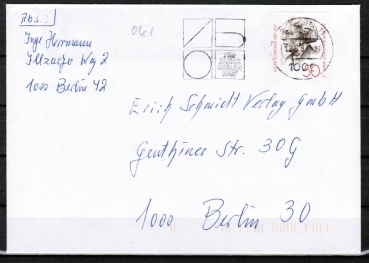 Abs.:
Inge Herrmann
Illzacher Weg 2
1000 Berlin 42
Erich Schmidt Verlag GmbH
Genthiner Str. 30 G
1000 Berlin 30
50